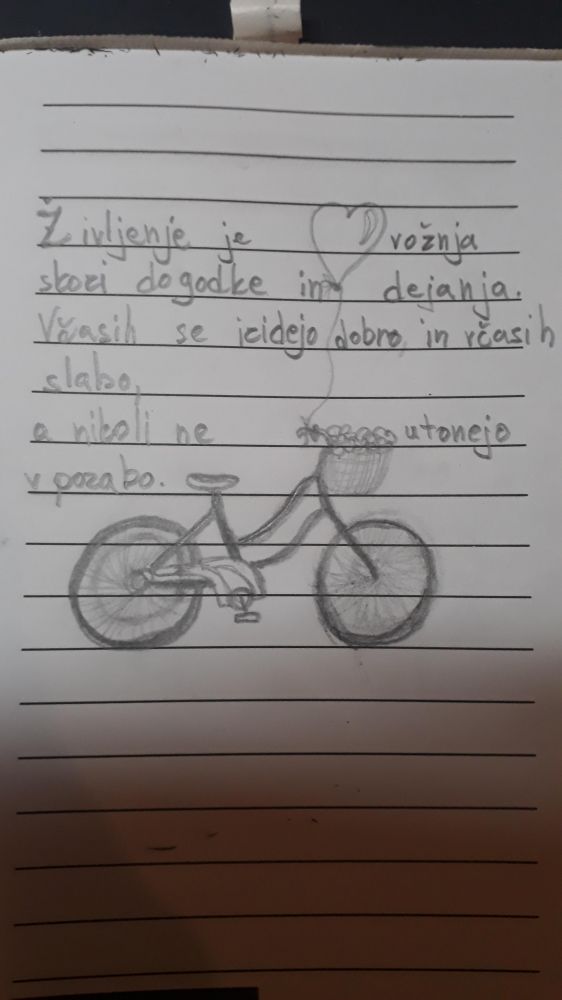 Življenje je vožnja
skozi dogodke in dejanja.
Včasih se izidejo dobro in včasih
slabo,
a nikoli ne utonejo
v pozabo.